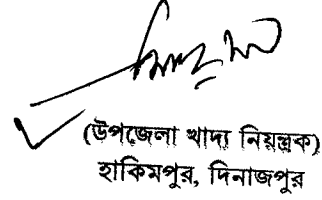 (উপজেলা খাদ্য নিয়ন্ত্রক)
হাকিমপুর, দিনাজপুর